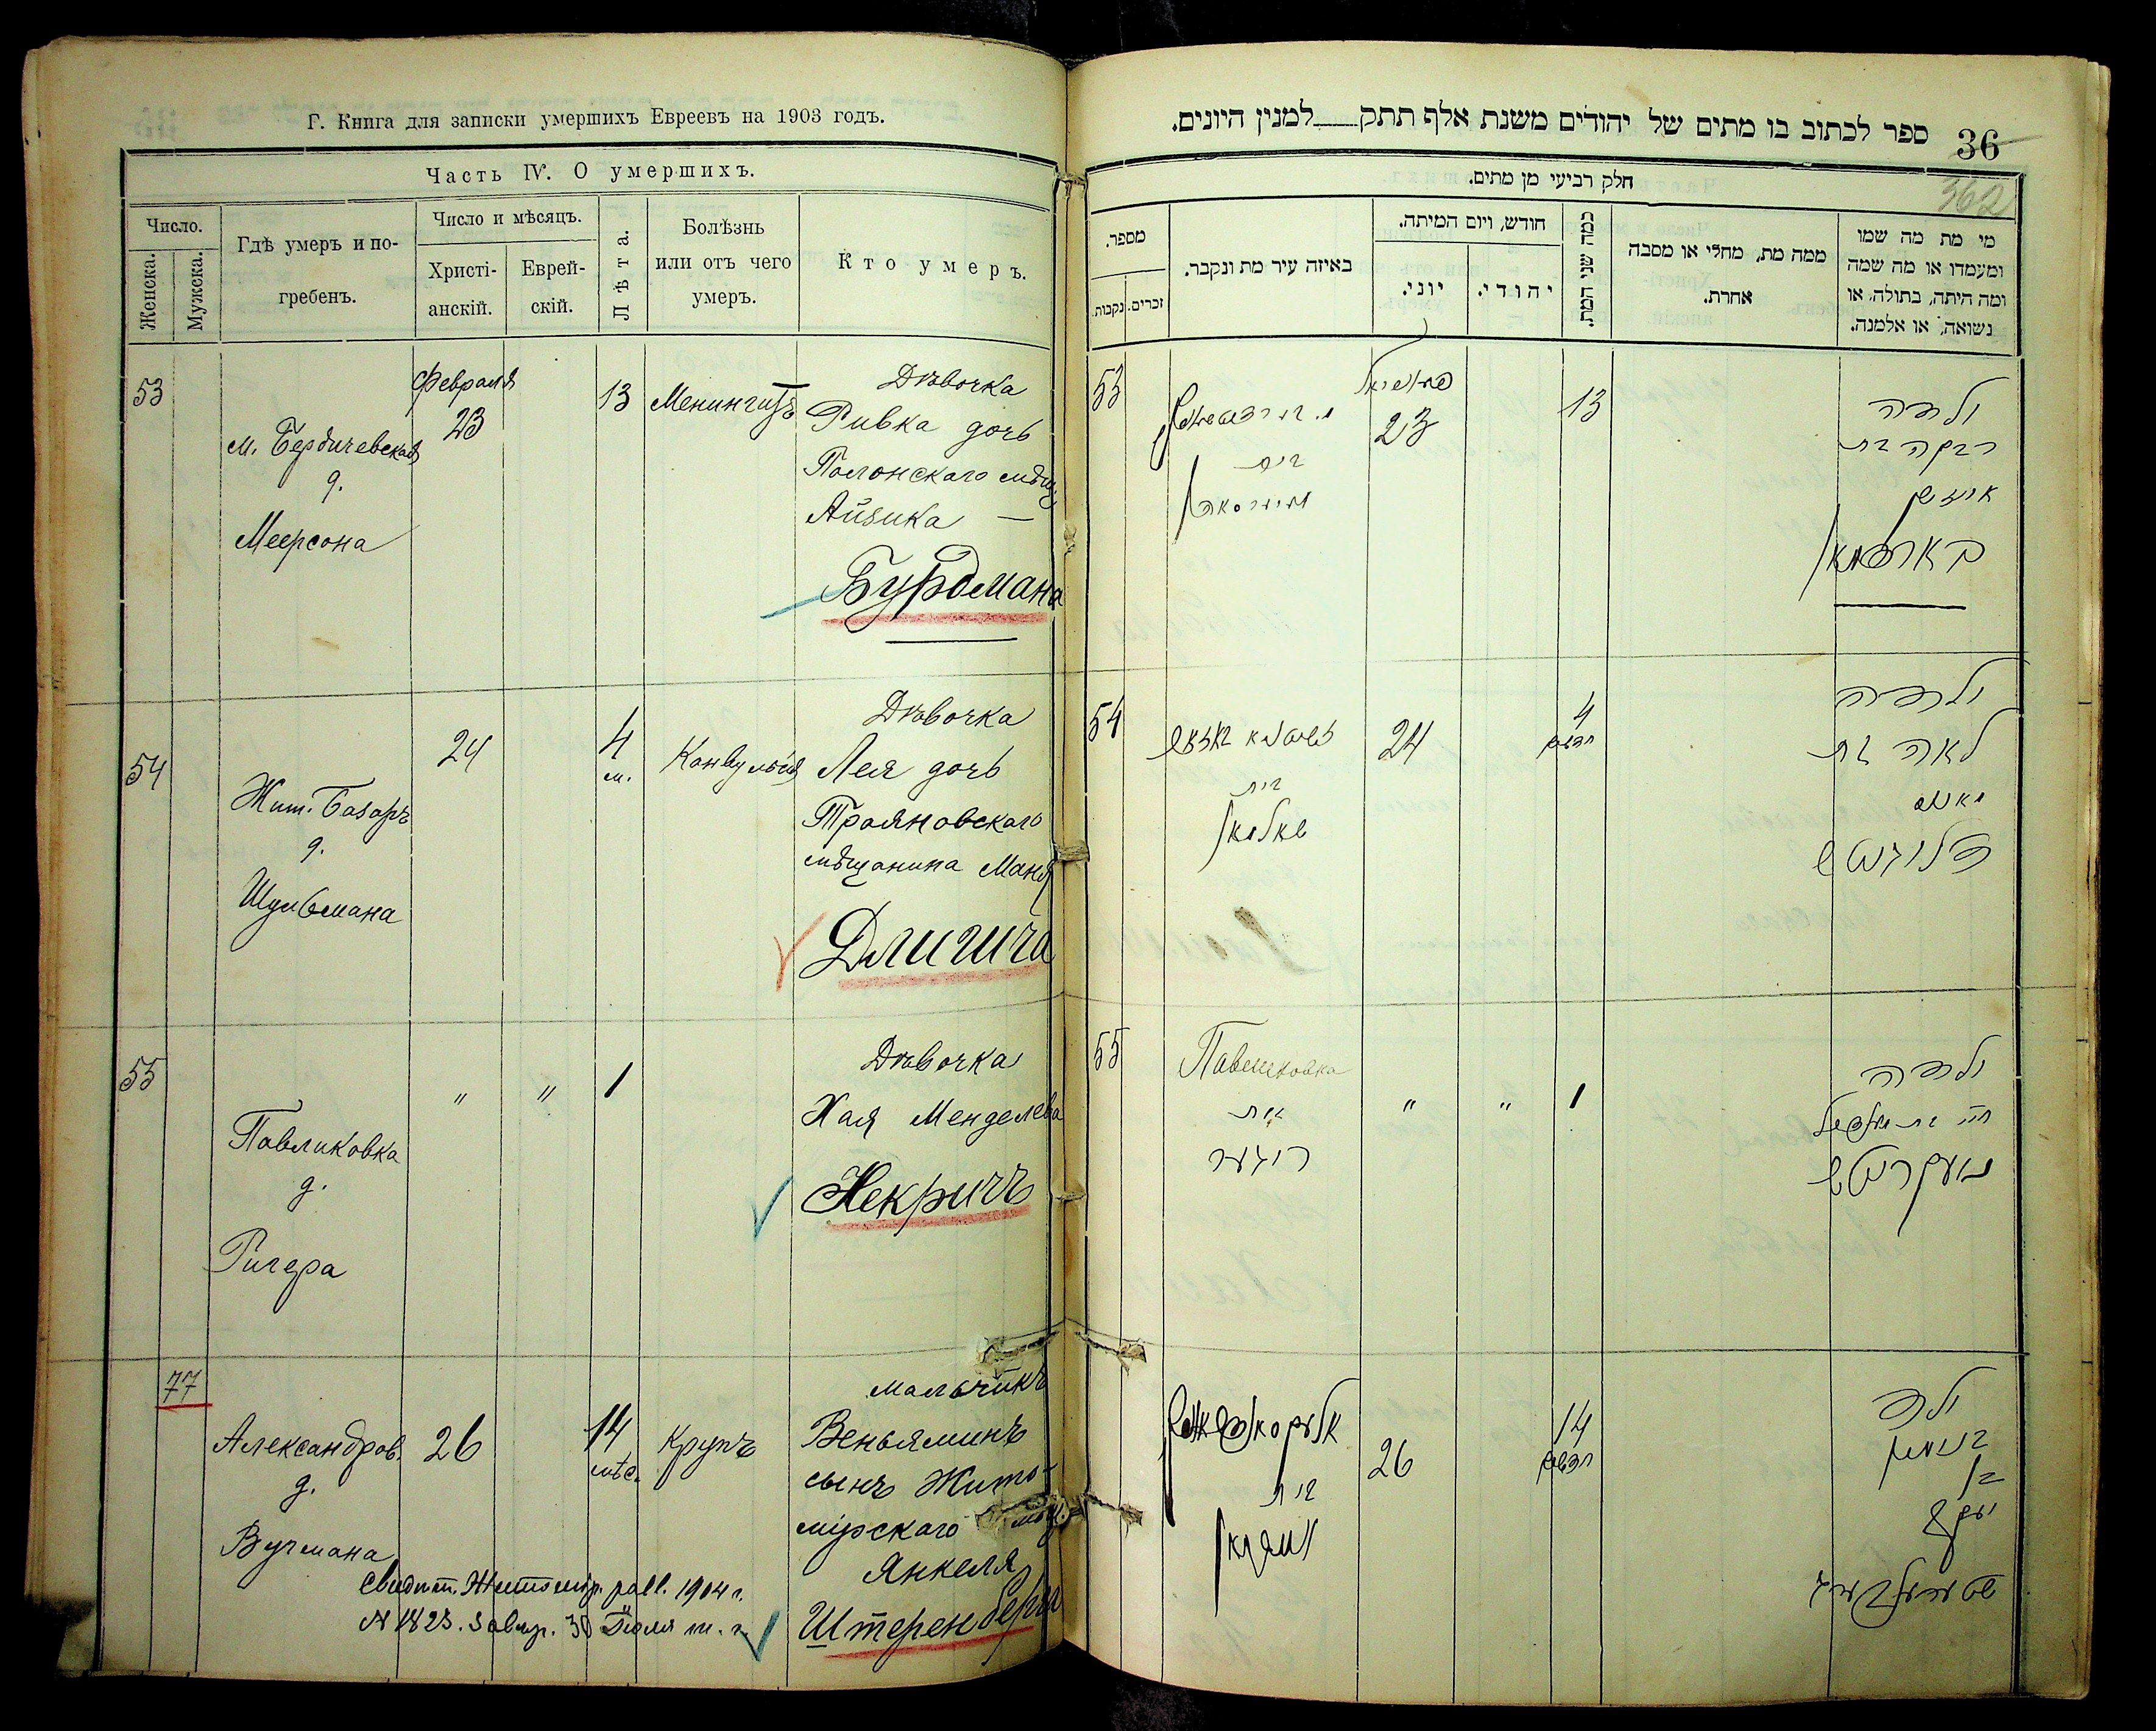 Г. Книга для записки умершихъ Евреевъ на 1903 годъ.
Часть IV. О умершихъ.
Число.
Женска.
Мужеска.
Гдѣ умеръ и по-
гребенъ.
Число и мѣсяцъ.
Христі-
анскій.
Еврей-
скій.
Лѣта.
Болѣзнь
или отъ чего
умеръ.
Кто умеръ.
53
м. Бердичевская
д.
Меерсона
Февраля
23
13
Менингитъ
Дѣвочка
Ривка дочь
Полонскаго мѣщ.
Айзика —
Бурдмана
54
Жит. Базаръ
д.
Шульмана
24
4
м.
Дѣвочка
Лея дочь
Трояновскаго
мѣщанина
Длигича
55
Павликовка
д.
Ригера
"
"
1
Дѣвочка
Хая Менделева
Некричъ
77
Александров.
д.
Вугмана
26
14
мѣс.
Крупъ
Мальчикъ
Веньяминъ
сынъ Жито-
мірскаго мѣщ.
Янкеля
Штеренберга
1904 г.
N 1823. 30 Іюля т. г.
ספר לכתוב בו מתים של יהודים משנת אלף תתק למנין היונים.
36
362
חלק רביעי מן מתים.
מספר.
זכרים.
נקבות.
באיזה עיר מת ונקבר.
חודש, ויום המיתה.
יוני.
יהודי.
כמה שני המת.
ממה מת, מחלי או מסבה
אחרת.
מי מת מה שמו
ומעמדו או מה שמה
ומה היתה, בתולה, או
נשואה, או אלמנה.
53
בית
23
13
ילדה
רבקה בת
אייזיק
בארדמאן
54
בית
שולמאן
24
4
חדשים
ילדה
לאה בת
55
Павликовка
בית
ריגער
"
"
1
ילדה
חי' בת מענדיל
נעקריטש
בית
26
14
חדשים
ילד
בנימין
בן
יעקב
שטערענבערג